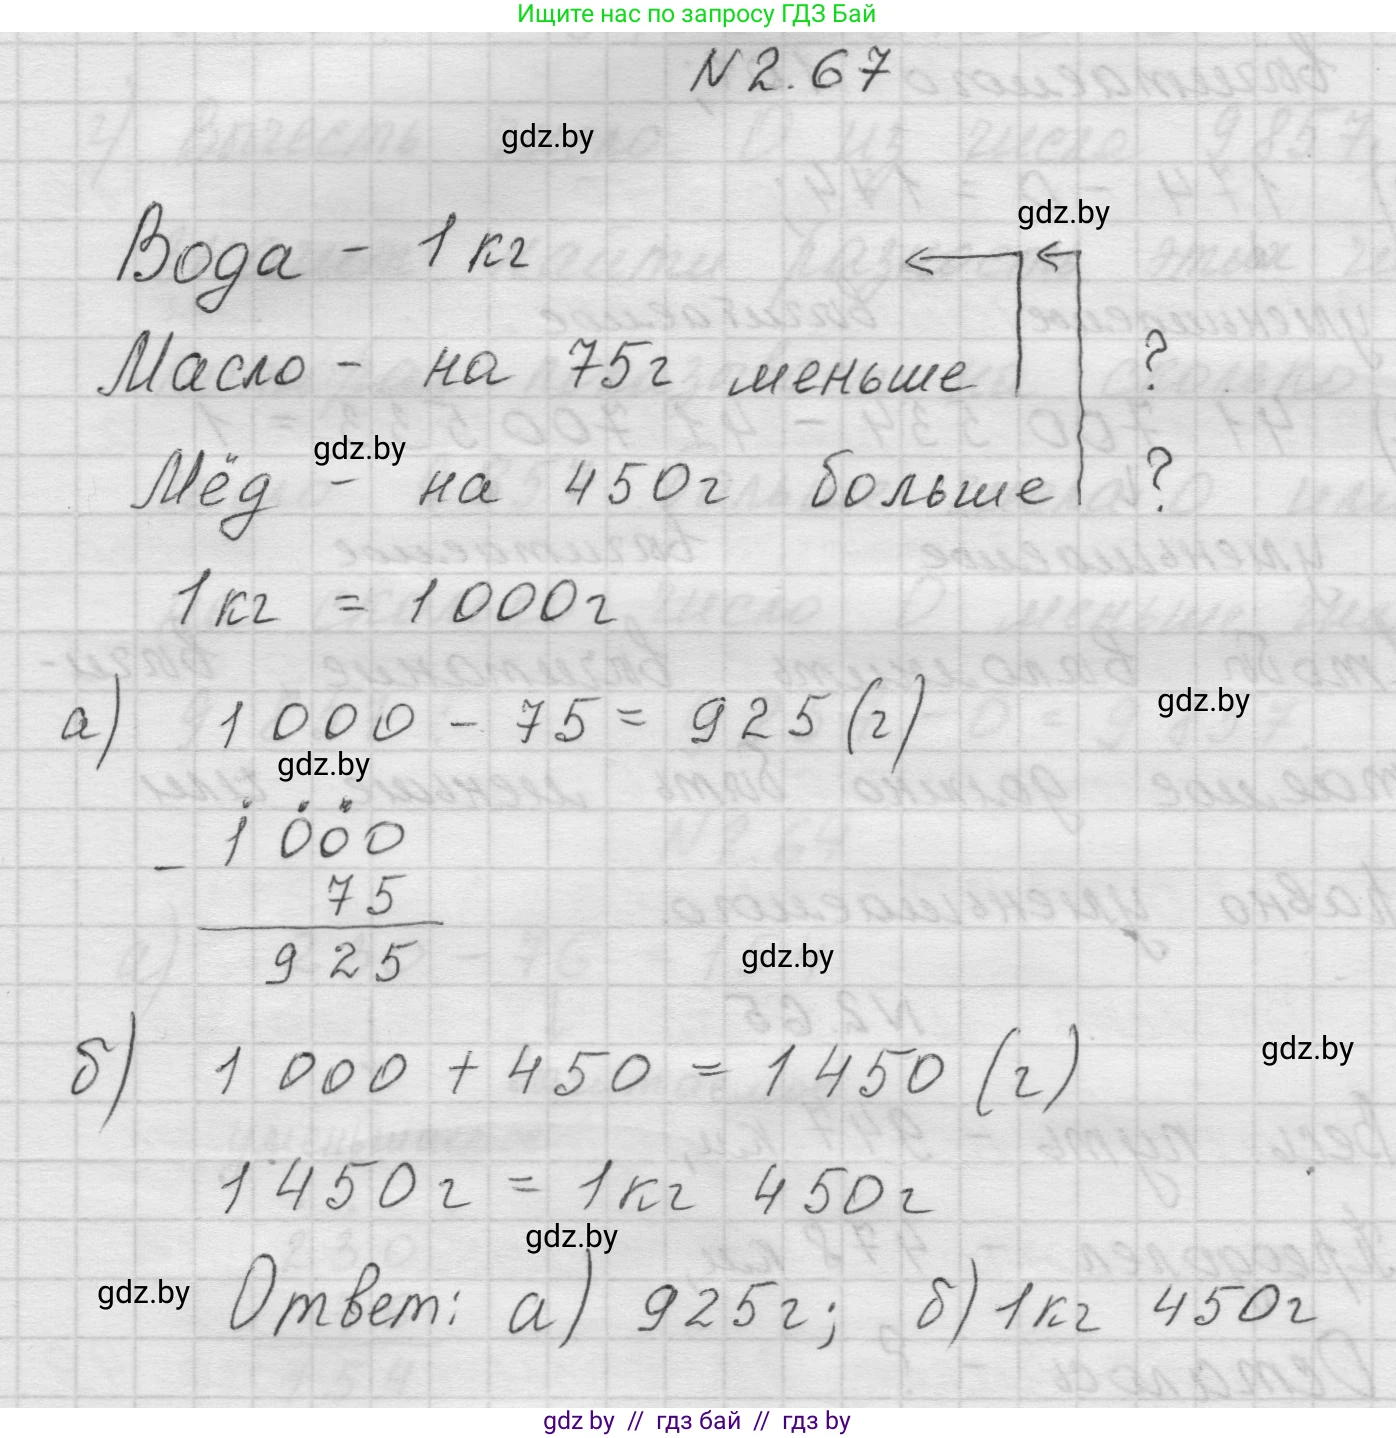 Ищите нас по запросу ГДЗ Бай
N2.67
gdz.by
gdz.by
Вода - 1кг
Масло - на 75г меньше ?
gdz.by
Мёд - на 450г больше ?
1кг = 1000г
gdz.by
а) 1000 - 75 = 925 (г)
gdz.by
1000
- 75
925
gdz.by
б) 1000 + 450 = 1450 (г)
gdz.by
1450г = 1кг 450г
gdz.by
gdz.by
Ответ: а) 925г; б) 1кг 450г
gdz.by // гдз бай // гдз by